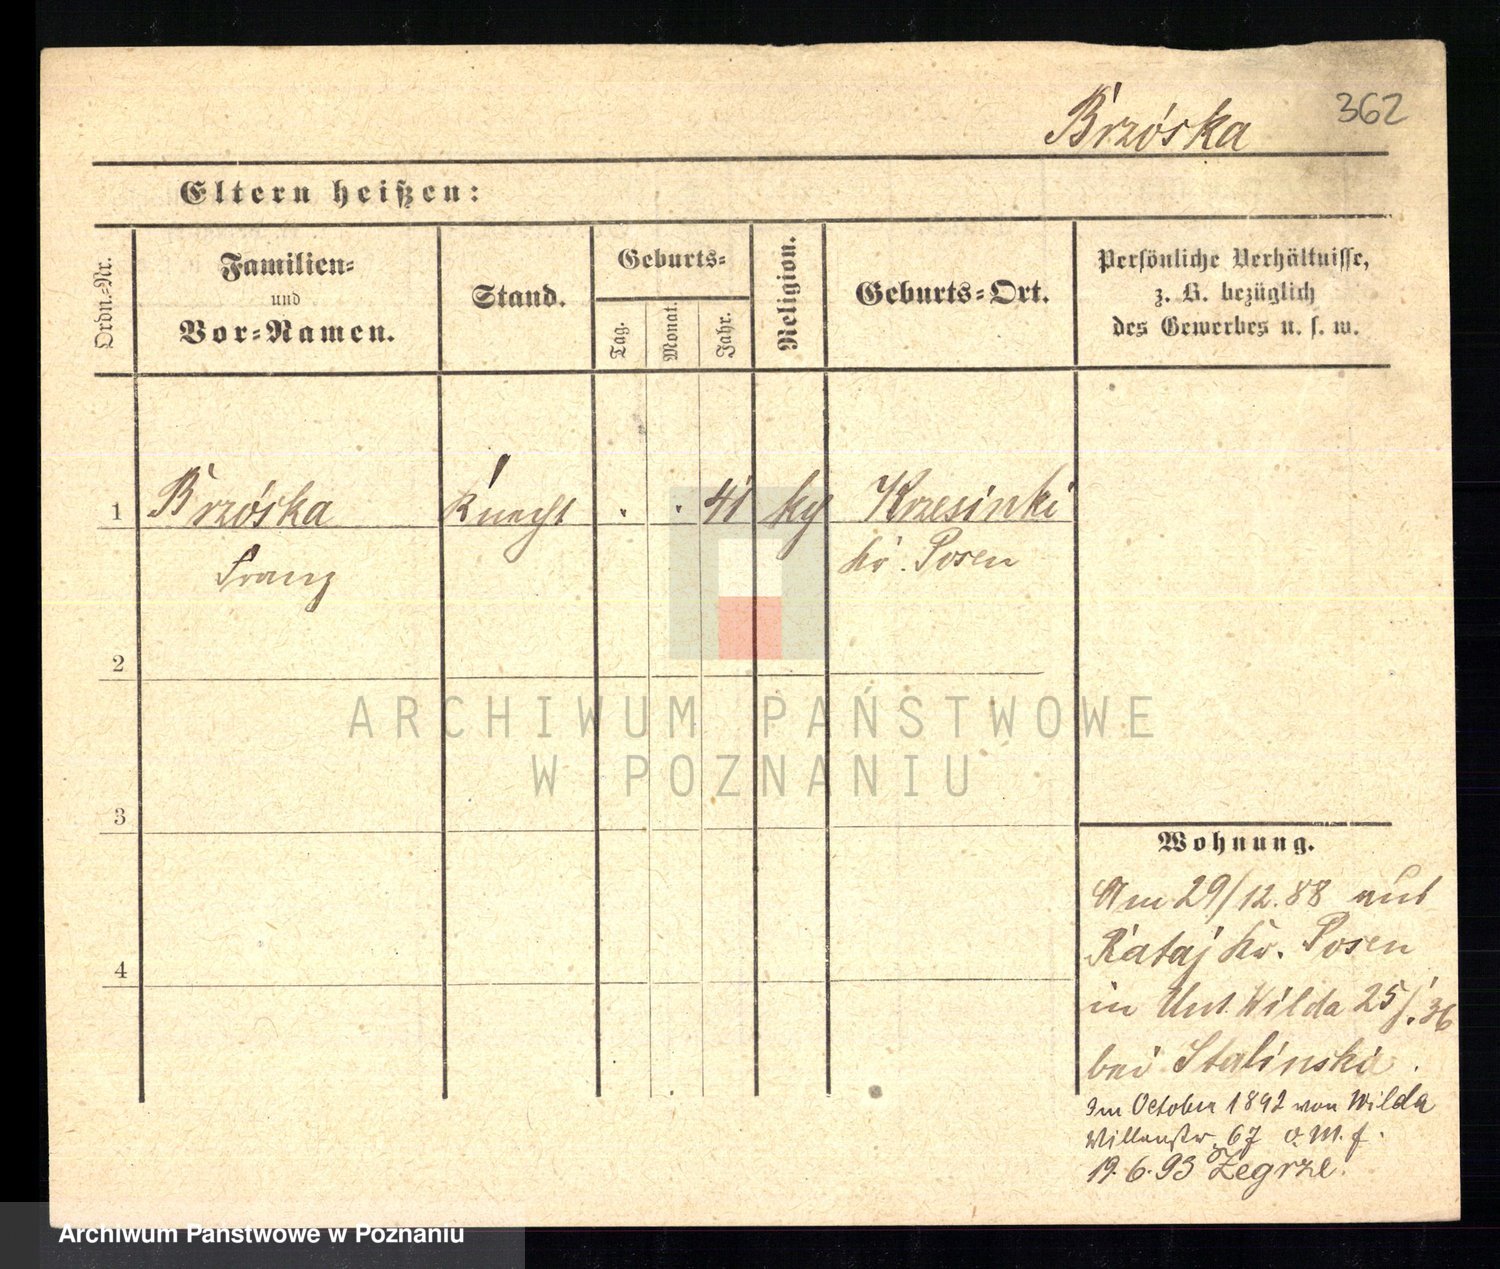 362
Brzóska
Eltern heißen:
Ordn.-Nr.
Familien-
und
Vor-Namen.
Stand.
Geburts-
Tag.
Monat.
Jahr.
Religion.
Geburts-Ort.
Persönliche Verhältnisse,
z. B. bezüglich
des Gewerbes u. s. w.
1 Brzóska Knecht . . 41 kg Krzesinki
Franz Kr. Posen
2
ARCHIWUM PAŃSTWOWE
W POZNANIU
3
Wohnung.
Am 29/12.88 aus
Rataj Kr. Posen
4
in Unt. Wilda 25/. 36
bei Stalinski.
Im October 1892 von Wilda
67 o. M. f.
19.6.93 Żegrze.
Archiwum Państwowe w Poznaniu